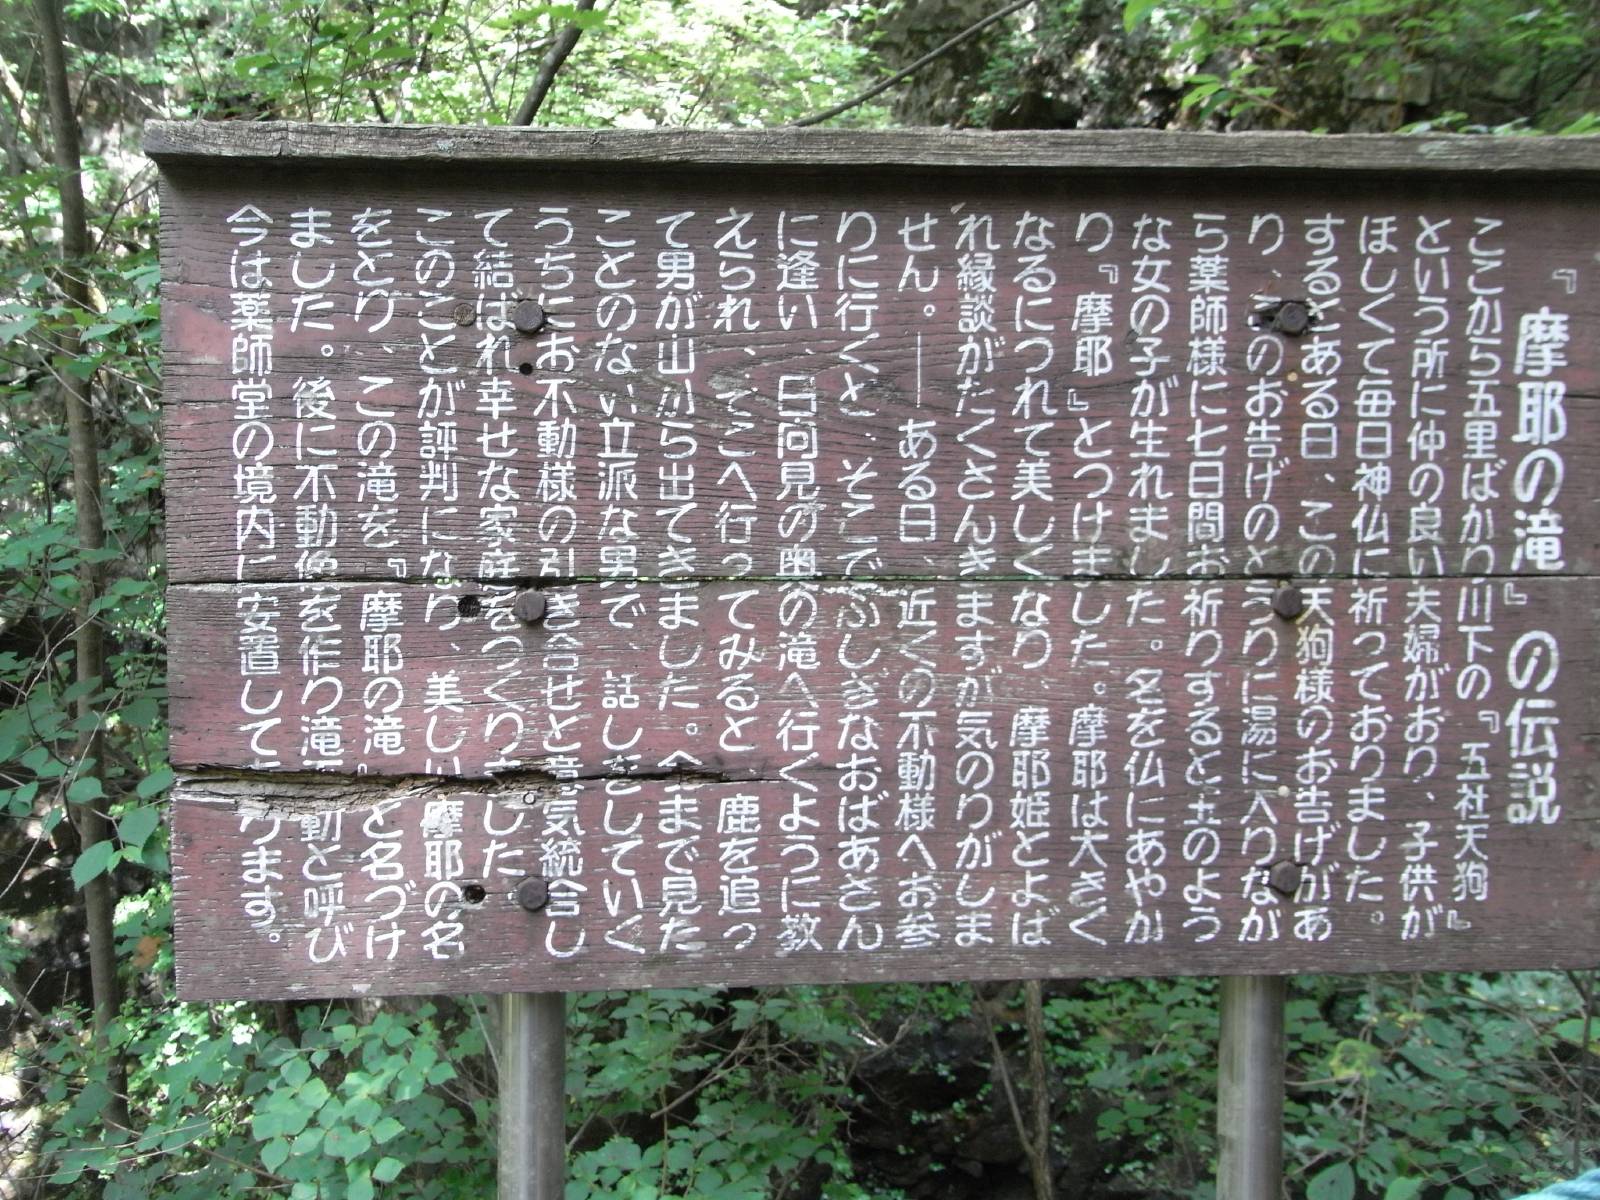 『摩耶の滝』の伝説
ここから五里ばかり川下の『五社天狗』
という所に仲の良い夫婦がおり、子供が
ほしくて毎日神仏に祈っておりました。
するとある日、この天狗様のお告げがあ
り、そのお告げのとうりに湯に入りなが
ら薬師様に七日間お祈りすると玉のよう
な女の子が生れました。名を仏にあやか
り『摩耶』とつけました。摩耶は大きく
なるにつれて美しくなり、摩耶姫とよば
れ縁談がたくさんきますが気のりがしま
せん。――ある日、近くの不動様へお参
りに行くと、そこでふしぎなおばあさん
に逢い、日向見の奥の滝へ行くように教
えられ、そこへ行ってみると 鹿を追っ
て男が山から出てきました。今まで見た
ことのない立派な男で、話しをしていく
うちにお不動様の引き合せと意気統合し
て結ばれ幸せな家庭をつくりました。
このことが評判になり、美しい摩耶の名
をとり、この滝を『摩耶の滝』と名づけ
ました。後に不動像を作り滝不動と呼び
今は薬師堂の境内に安置してあります。